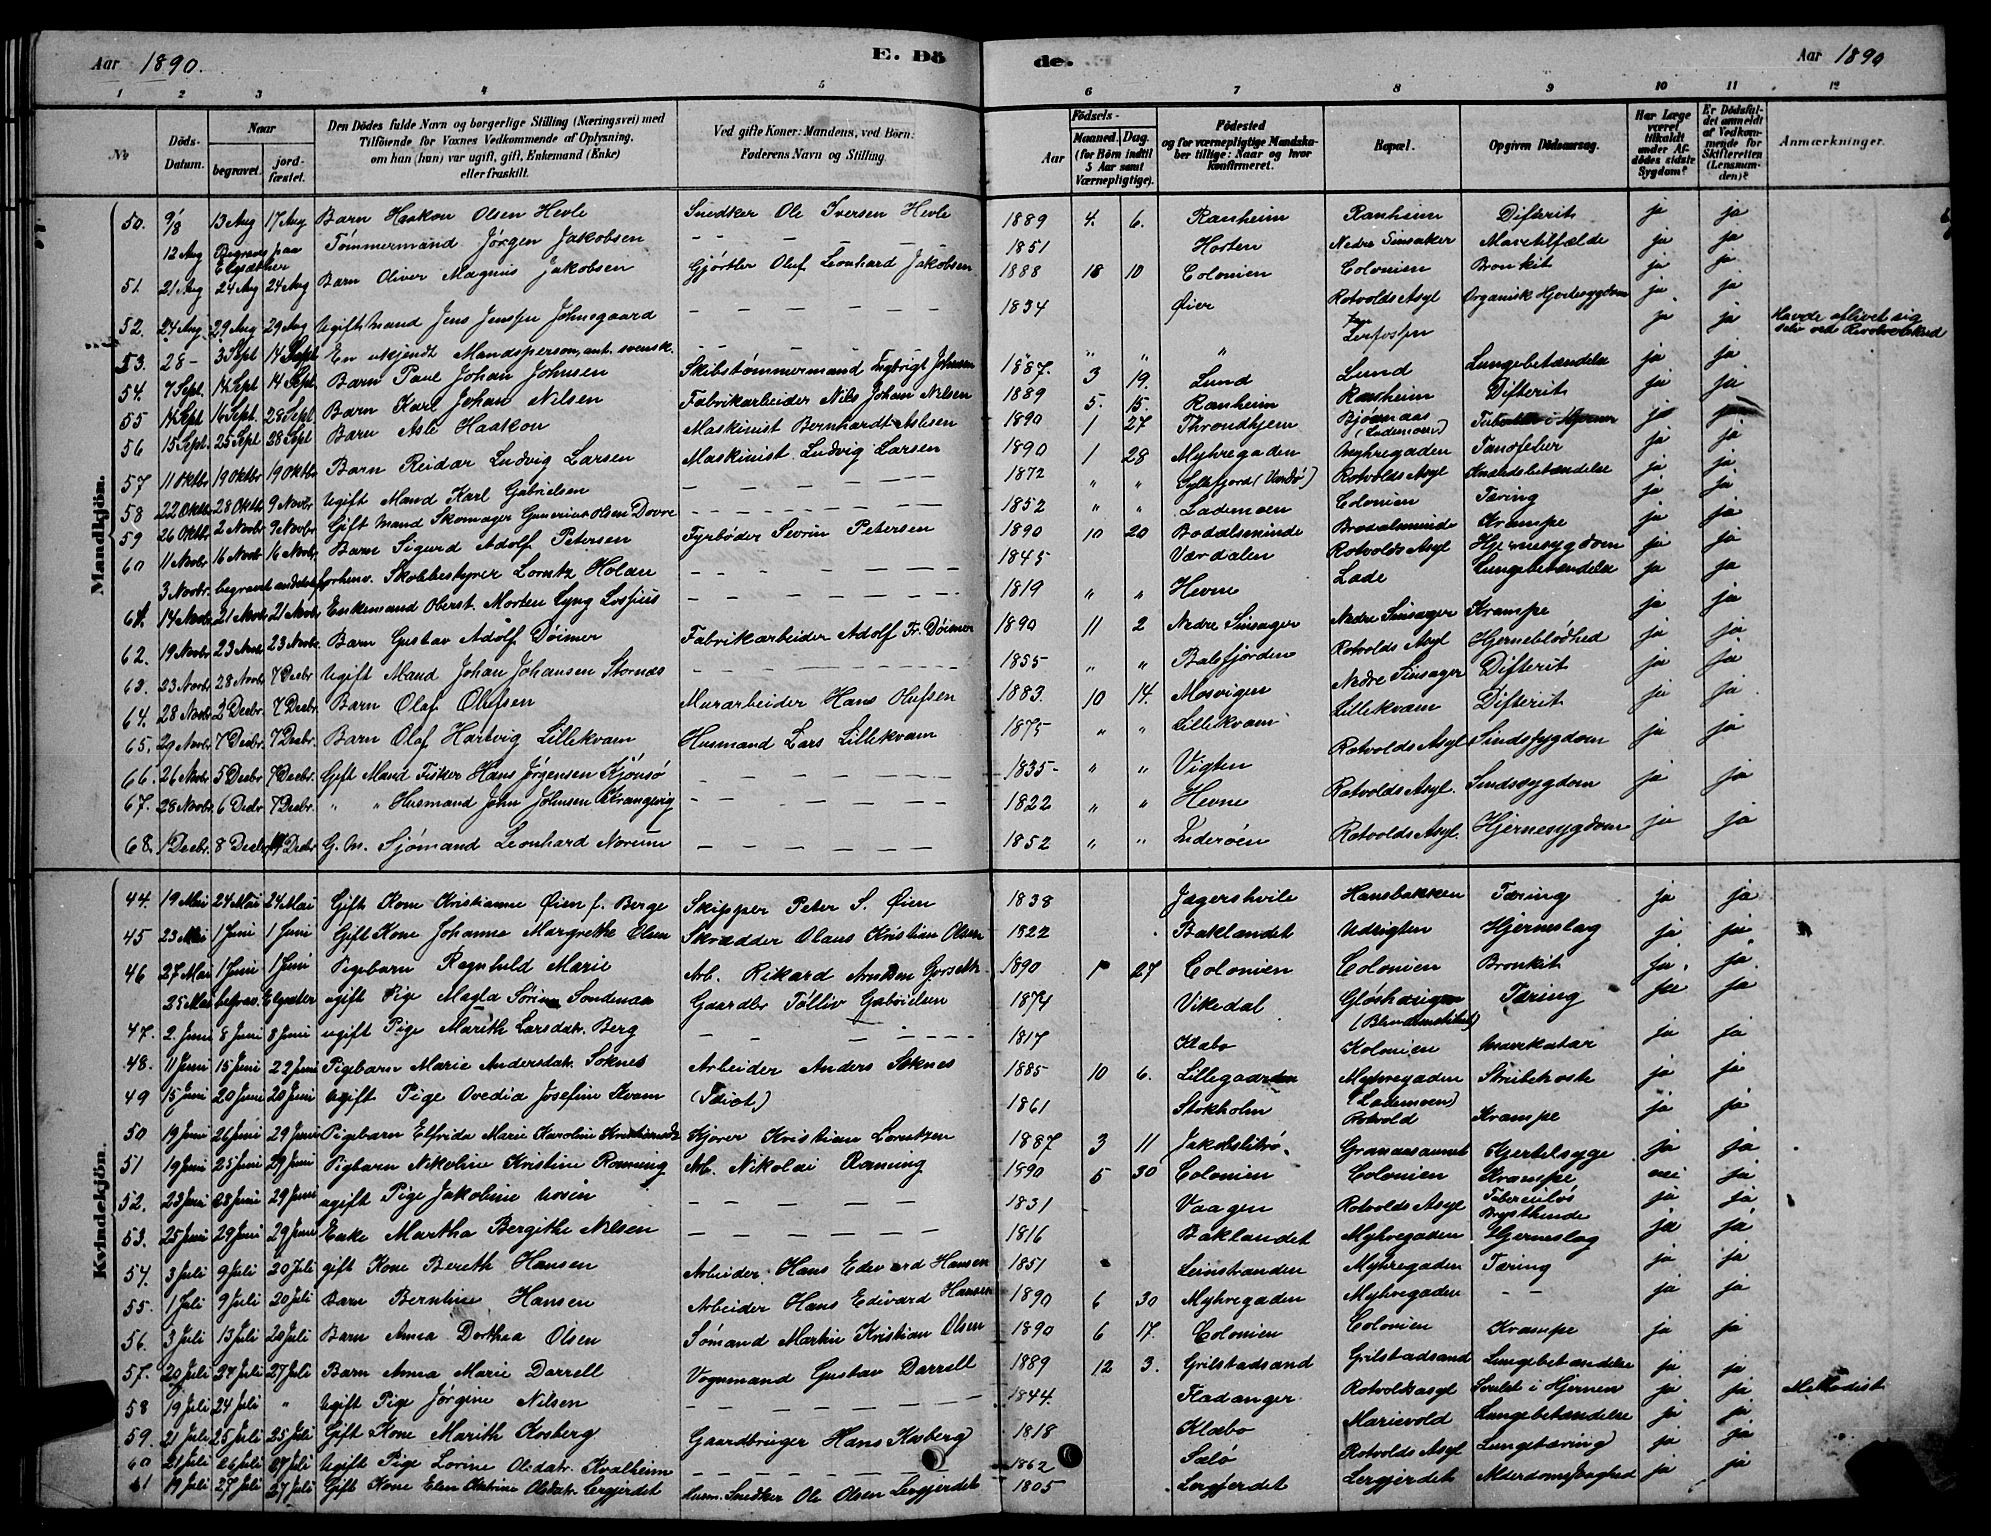 Aar 1890. E. Dö de. Aar 1890
1 2 3 4 5 6 7 8 9 10 11 12
No
Döds-Datum.
Naar begravet. jordfæstet.
Den Dödes fulde Navn og borgerlige Stilling (Næringsvei) med Tilföiende for Voxnes Vedkommende af Oplysning, om han (hun) var ugift, gift, Enkemand (Enke) eller fraskilt.
Ved gifte Koner: Mandens, ved Börn: Faderens Navn og Stilling.
Aar
Födsels- Maaned. Dag. (for Börn indtil 5 Aar samt Værnepligtige).
Födested og for værnepligtige Mandskaber tillige: Naar og hvor konfirmeret.
Bopæl.
Opgiven Dödsaarsag.
Har Læge været tilkaldt under Afdödes sidste Sygdom?
Er Dödsfaldet anmeldt af Vedkommende for Skifteretten (Lensmanden)?
Anmærkninger.
Mandkjön.
50. 9/8 13 Aug 17 Aug Barn Haakon Olsen Hevle Snedker Ole Iversen Hevle 1889 4. 6. Ranheim Ranheim Difterit ja ja
12 Aug Begravet paa Elgsæther Tømmermand Jørgen Jakobsen 1851 Horten Nedre Sinsaker Mavetilfælde ja ja
51. 21 Aug 24 Aug 24 Aug Barn Oliver Magnus Jakobsen Gjørtler Oluf Leonhard Jakobsen 1888 18 10 Colonien Colonien Bronkit ja ja
52. 24 Aug 29 Aug 29 Aug Ugift Mand Jens Jensen Johnsgaard 1834 Øier Rotvolds Asyl Organisk Hjertesygdom ja ja
53. 28 - 3 Sept 14 Sept En ukjendt Mandsperson, ant. svensk. " " " Lerfossen ja ja Havde aflivet sig selv ved Revolverskud
54. 7 Sept. 14 Sept 14 Sept. Barn Paul Johan Johnsen Skibstømmermand Ingbrigt Johnsen 1887. 3 19. Lund Lund Lungebetændelse ja ja
55 14 Sept 16 Sept. 28 Sept Barn Karl Johan Nilsen Fabrikarbeider Nils Johan Nilsen 1889 5. 15. Ranheim Ranheim Difterit ja ja
56 15 Sept. 25 Sept 28 Sept Barn Asle Haakon Maskinist Bernhardt Aslesen 1890 1 27 Throndhjem Bjørnaas (Lademoen) ja
57 11 Oktbr 19 Oktbr 19 Oktbr Barn Reidar Ludvig Larsen Maskinist Ludvig Larsen 1890 1 28 Myhregaden Myhregaden Tandfeber ja ja
58 22 Oktbr. 28 Oktbr 9 Novbr Ugift Mand Karl Gabrielsen 1872 " " Syltefjord (Vardø) Rotvolds Asyl ja ja
59 26 Oktbr. 2 Novbr 9 Novbr Gift Mand Skomager Olsen Dovre 1852 " " Lademoen Colonien Tæring ja ja
60 11 Novbr 16 Novbr 16 Novbr. Barn Sigurd Adolf Petersen Fyrbøder Sevrin Petersen 1890 10 20 Bodalsminde Krampe ja ja
3 Novbr. begravet andetsteds forhenv. Skolebestyrer Lorntz Holan 1845 Værdalen Rotvolds Asyl Hjernesygdom ja ja
61. 14 Novbr 21 Novbr 21 Novbr Enkemand Oberst. Morten Lyng Lossius 1819 " " Hevne Lade Lungebetændelse ja ja
62. 19 Novbr 23 Novbr 23 Novbr Barn Gustav Adolf Döimer Fabrikarbeider Adolf Fr. Döimer 1890 11 2 Nedre Sinsager Nedre Sinsager Krampe ja ja
63. 23 Novbr. 28 Novbr 7 Decbr Ugift Mand Johan Johansen Stornæs 1855 " " Balsfjorden Rotvolds Asyl Hjerneblödhed ja ja
64. 28 Novbr. 2 Decbr. 7 Decbr. Barn Olaf Olufsen Murarbeider Hans Olufsen 1883. 10 14. Mosvigen Nedre Sinsager Difterit ja ja
65. 29 Novbr. 7 Decbr. 7 Decbr. Barn Olaf Hartvig Lillekvam Husmand Lars Lillekvam 1875 " " Lillekvam Lillekvam Difterit ja ja
66. 26 Novbr 5 Decbr 7 Decbr. Gift Mand Fisker Hans Jørgensen Kjønsø 1835 " " Vigten Rotvolds Asyl Sindssygdom ja ja
67. 28 Novbr. 6 Decbr 7 Decbr. " " Husmand John Johnsen Strangevig 1822 " " Hevne Rotvolds Asyl. Sindssygdom ja ja
68. 1 Decbr. 8 Decbr 14 Decbr G. M. Sjømand Leonhard Norum 1852 " " Inderøen Rotvolds Asyl. Hjernesygdom ja ja
Kvindekjön.
44. 19 Mai 24 Mai 24 Mai Gift Kone Kristianne Øien f. Berge Skipper Peter S. Øien 1838 Jægershvile Hansbakken Tæring ja ja
45 23 Mai 1 Juni 1 Juni Gift Kone Johanna Margrethe Olsen Skrædder Olaus Kristian Olsen 1822 Baklandet Udsigten Hjerneslag ja ja
46 27 Mai 1 Juni 1 Juni Pigebarn Ragnhild Marie Arb. Rikard Arntsen 1890 1 27 Colonien Colonien Bronkit ja. ja
25 Mai begrav. Elgseter ugift Pige Magla Sörine Sondenaa Gaardbr Tölliv Gabrielsen 1874 Vikedal Gløshaugen (Blindeinstitut) Tæring ja ja
47. 2. Juni 8 Juni 8 Juni ugift Pige Marith Larsdatr. Berg 1817 Klæbo Kolonien Mavekatar ja ja
48. 11 Juni 15 Juni 22 Juni Pigebarn Marie Andersdatr. Soknes Arbeider Anders Soknes 1885 10 6. Lillegaarden Myhregaden (Lademoen) Strubehoste ja ja
49 15 Juni 20 Juni 20 Juni Ugift Pige Ovedia Josefine Kvam (Idiot) 1861 Stokholm Rotvold Krampe ja ja
50 19 Juni 26 Juni 29 Juni Pigebarn Elfrida Marie Karoline Kristiansdtr Kjører Kristian Lorntzen 1887 3 11 Jakobslitrø. Granaasaunet Kjertelsyge ja ja
51 19 Juni 25 Juni 29 Juni Pigbarn Nikoline Kristine Rønning Arb. Nikolai Rønning 1890 5 30 Colonien Colonien Krampe nei ja
52. 23 Juni 28 Juni 29 Juni ugift Pige Jakoline 1831 Vaagen Rotvolds Asyl Tuberculøs Brysthinde ja ja
53. 25 Juni 29 Juni 29 Juni Enke Martha Bergithe Nilsen 1816 Baklandet Myhregaden Hjerneslag ja ja
54. 3 Juli 9 Juli 20 Juli gift Kone Bereth Hansen Arbeider Hans Edevard Hansen 1851 Leinstranden Myhregaden Tæring ja ja
55. 1 Juli 9 Juli 20 Juli Barn Berntine Hansen Arbeider Hans Edevard Hansen 1890 6 30 Myhregaden Myhregaden - - ja ja
56. 3 Juli 13 Juli 20 Juli Barn Anna Dorthea Olsen Sømand Martin Kristian Olsen 1890 6 17. Colonien Colonien Krampe ja ja
57. 20 Juli 27 Juli 27 Juli Barn Anna Marie Darrell Vognmand Gustav Darrell 1889 12 3. Grilstadsand Grilstadsand Lungebetændelse ja ja
58 19 Juli 24 Juli " Ugift Pige Jørgine Nilsen 1844. Fladanger Rotvoldsasyl Svulst i Hjernen ja ja Methodist
59. 21 Juli 25 Juli 25 Juli Gift Kone Marith Kosberg Gaardbruger Hans Kosberg 1818 Klæbo Marievold Lungebetændelse ja ja
60 21 Juli 26 Juli 27 Juli Ugift Pige Lorine Olsdatr. Kvalheim 1862 Selø Rotvolds Asyl Lungetæring ja ja
61 19 Juli 27 Juli 27 Juli Gift Kone Elen Katrine Olsdatr. Lergjerdet Husm. Snedker Ole Olsen Lergjerdet 1805 Lergjerdet Lergjerdet Alderdomssvaghed ja ja